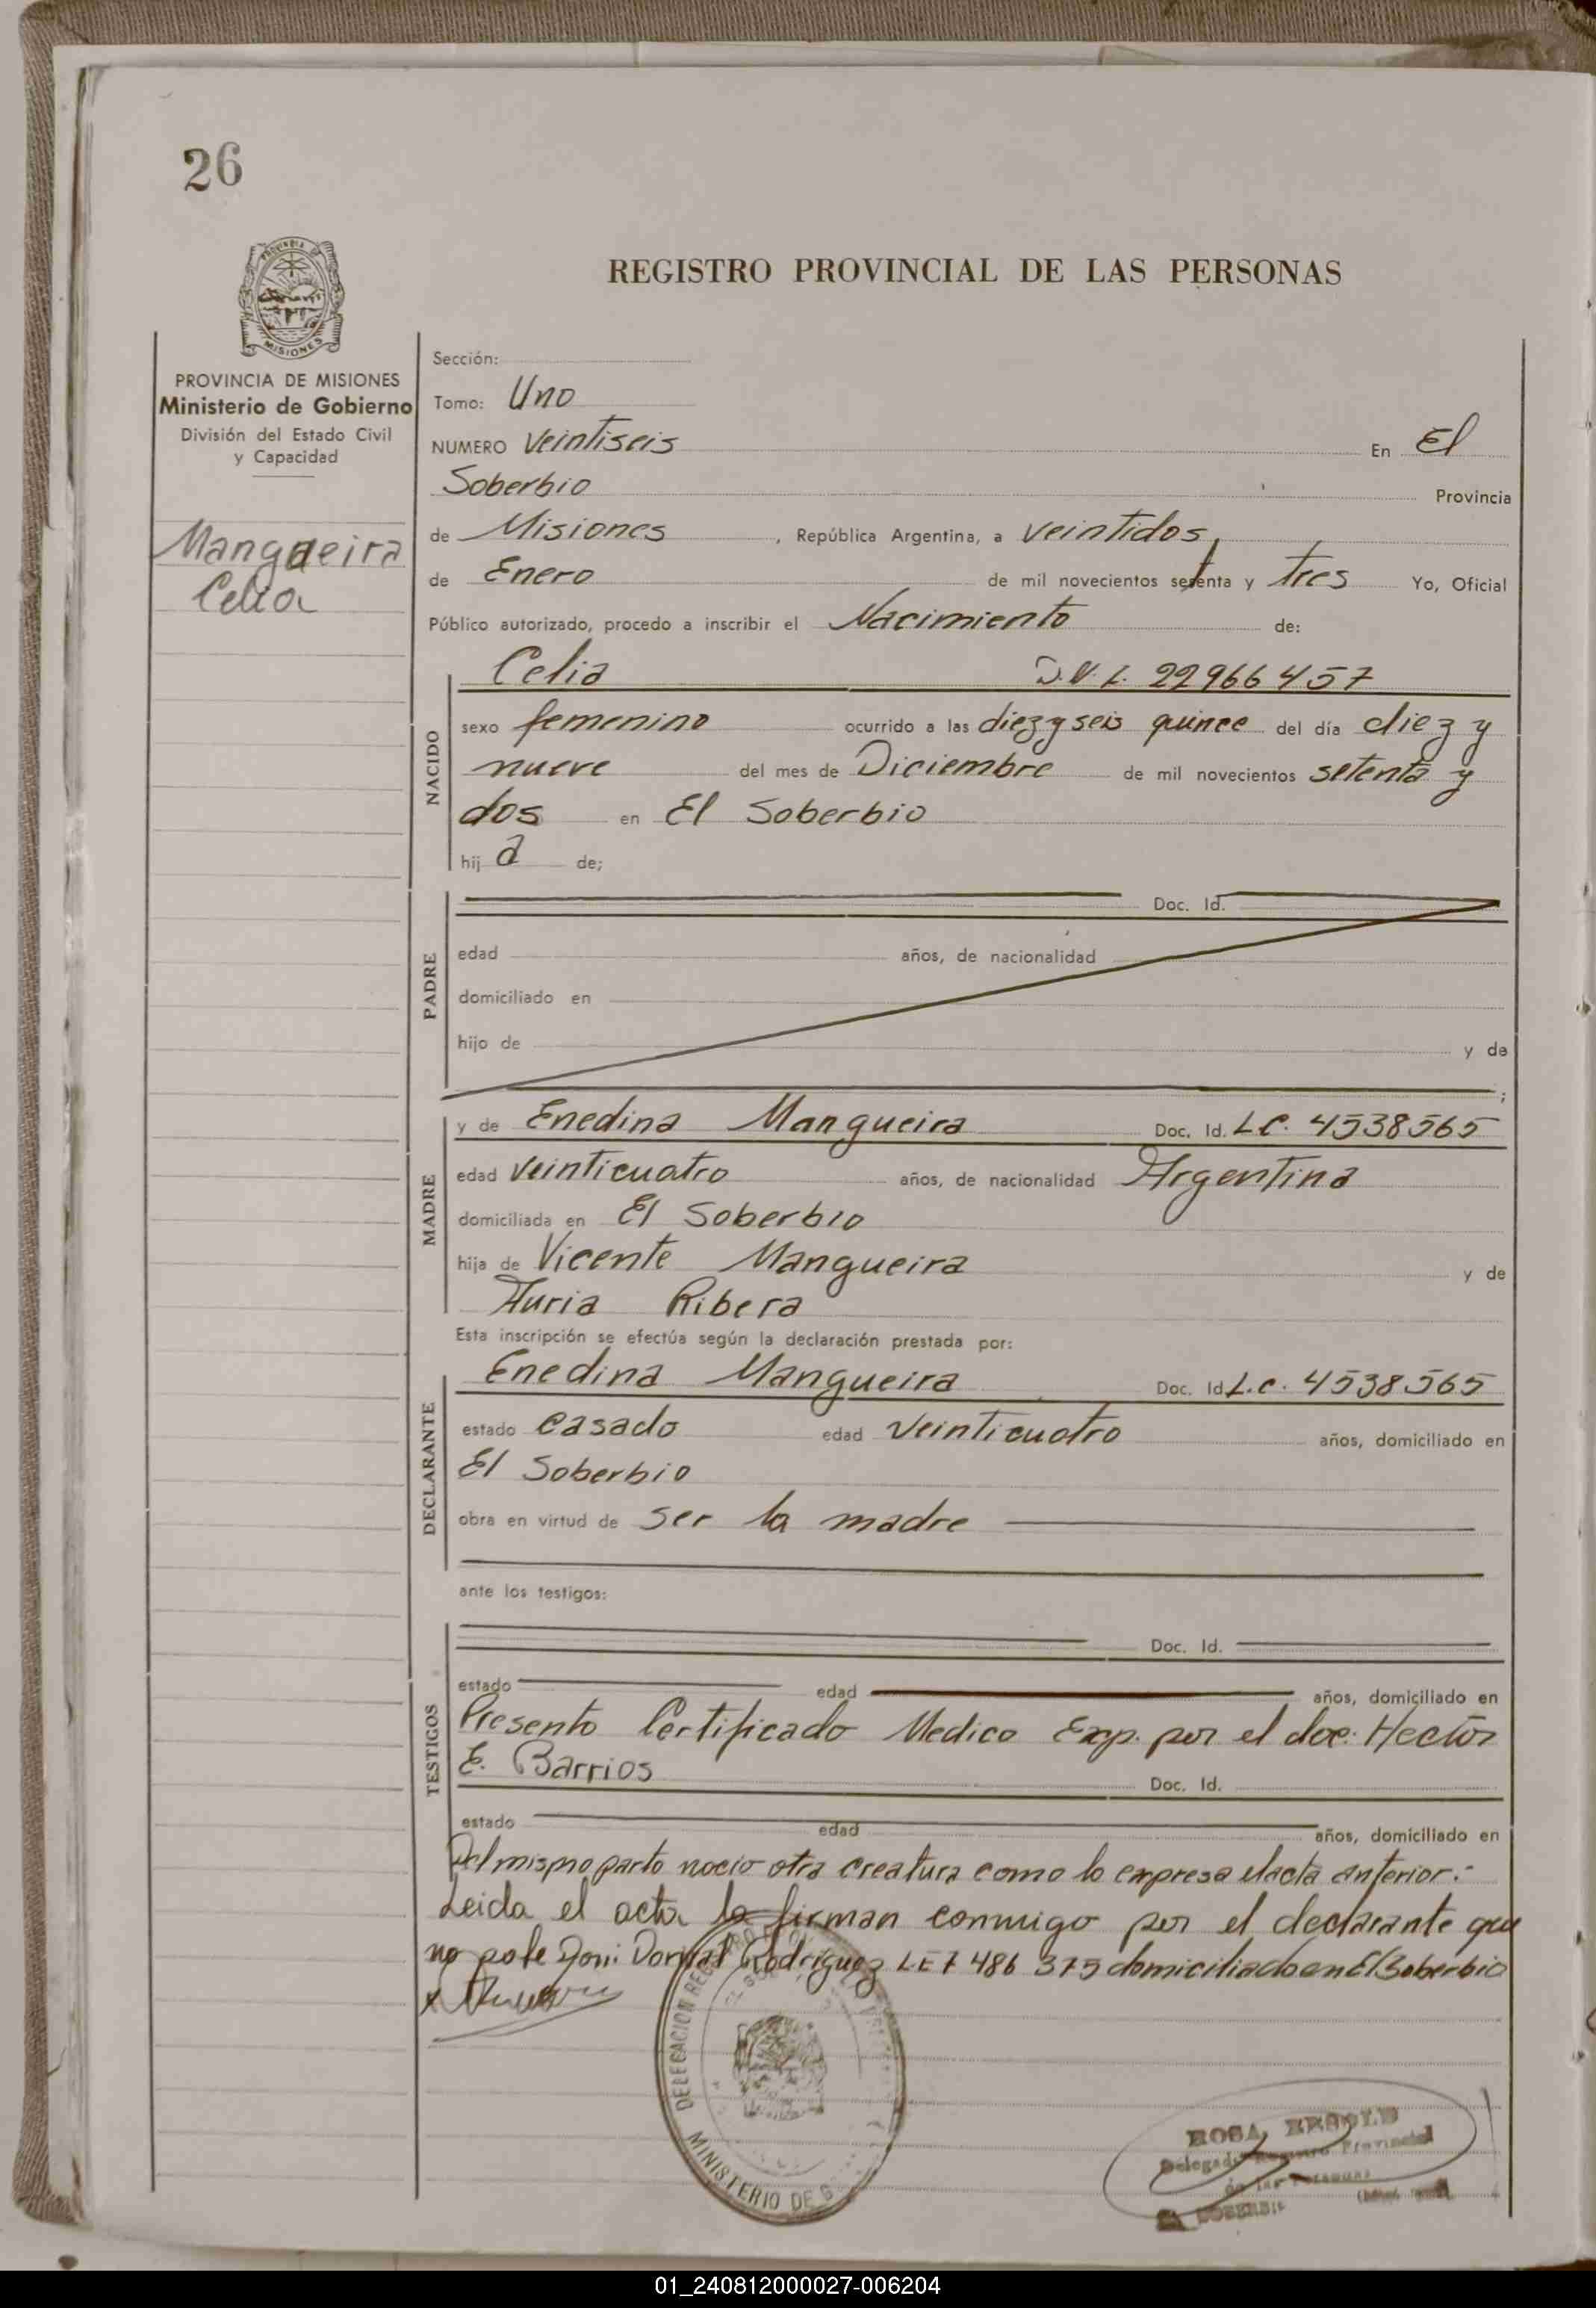 26
REGISTRO PROVINCIAL DE LAS PERSONAS
PROVINCIA
MISIONES
PROVINCIA DE MISIONES
Ministerio de Gobierno
División del Estado Civil
y Capacidad
Mangueira
Celia
Sección:
Tomo: Uno
NUMERO Veintiseis En El
Soberbio Provincia
de Misiones, República Argentina, a veintidos
de Enero de mil novecientos setenta y tres Yo, Oficial
Público autorizado, procedo a inscribir el Nacimiento de:
NACIDO
Celia 22966457
sexo femenino ocurrido a las diez y seis quince del día diez y
nueve del mes de Diciembre de mil novecientos setenta y
dos en El Soberbio
hij a de;
PADRE
Doc. Id.
edad años, de nacionalidad
domiciliado en
hijo de y de
;
MADRE
y de Enedina Mangueira Doc. Id. L.C. 4538565
edad veinticuatro años, de nacionalidad Argentina
domiciliada en El Soberbio
hija de Vicente Mangueira y de
Auria Ribera
Esta inscripción se efectúa según la declaración prestada por:
DECLARANTE
Enedina Mangueira Doc. Id. L.C. 4538565
estado casado edad veinticuatro años, domiciliado en
El Soberbio
obra en virtud de ser la madre
ante los testigos:
TESTIGOS
Doc. Id.
estado edad años, domiciliado en
Presento Certificado Medico Exp. por el doc. Hector
E. Barrios Doc. Id.
estado edad años, domiciliado en
Del mismo parto nacio otra creatura como lo expresa el acta anterior.-
Leida el acta la firman conmigo por el declarante que
no Dorival Rodriguez LE 7 486 375 domiciliado en El Soberbio
DELEGACION
MINISTERIO DE G
ROSA
Delegada Registro Provincial
de las Personas
SOBERBIO
01_240812000027-006204